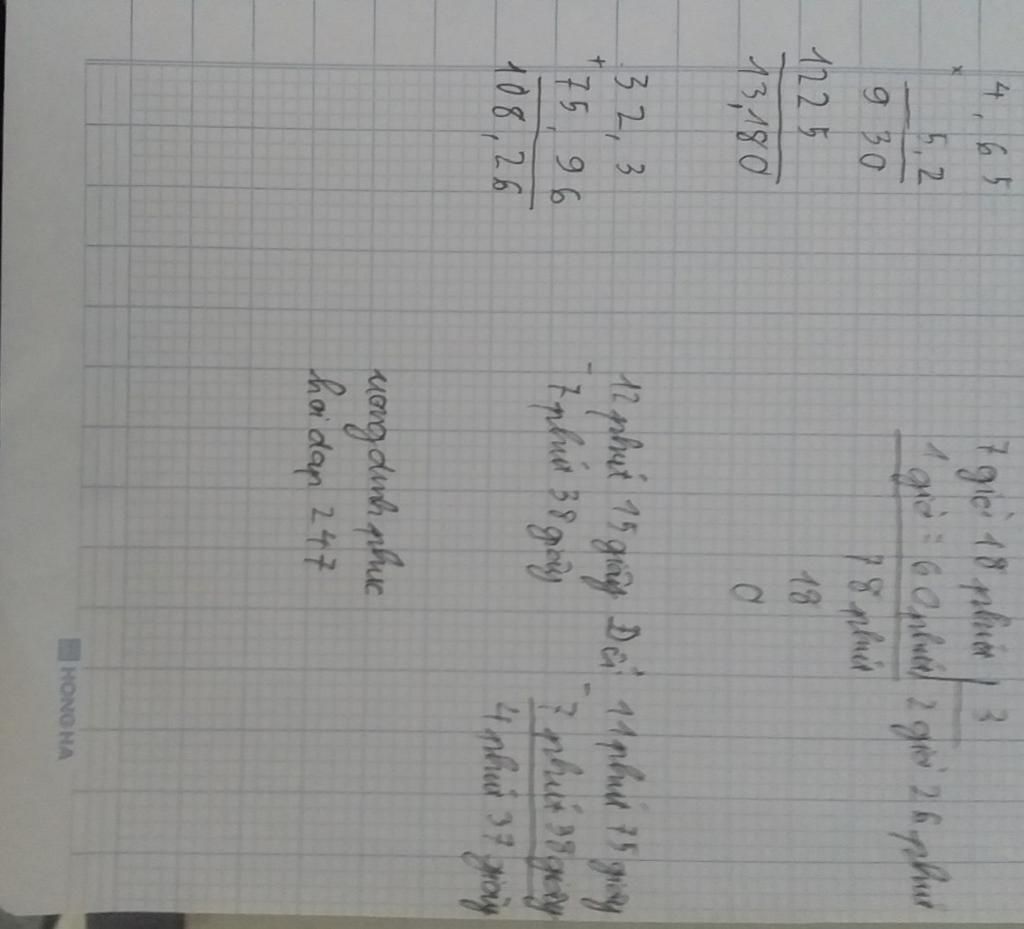 4,65
x
5,2
930
1225
13,180
32,3
+
75,96
108,26
7 giờ 18 phút 3
1 giờ = 60 phút 2 giờ 26 phút
78 phút
18
0
12 phút 15 giây Đổi 11 phút 75 giây
- 7 phút 38 giây - 7 phút 38 giây
4 phút 37 giây
hoi dap 247
HONG HA